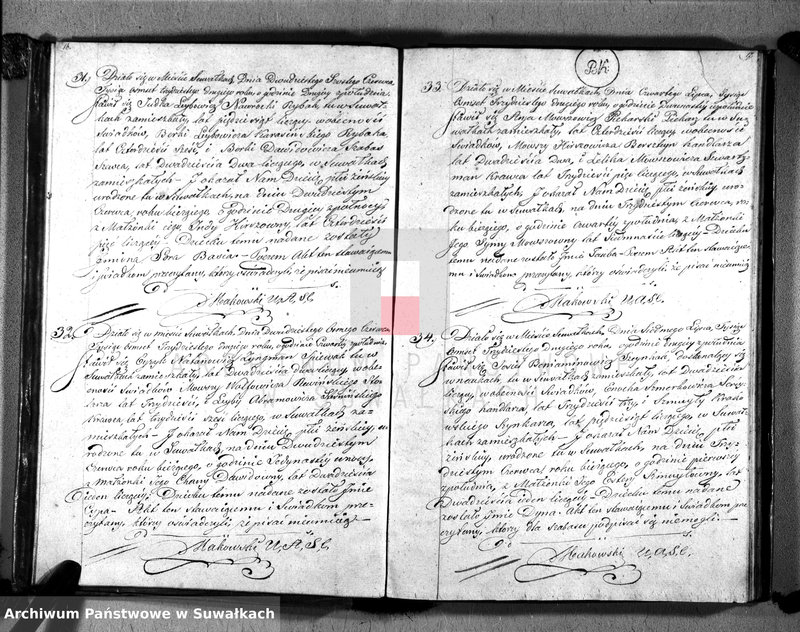 31. Działo się w Mieście Suwałkach Dnia Dwudziestego Szostego Czerwca
Tysiąc ośmset trzydziestego drugiego roku, o godzinie Drugiey z południa.
Stawił się Judka Leybowicz Naworski Rybak, tu w Suwał-
kach zamieszkały, lat pięćdziesiąt liczący, w obecności
Swiadków, Berki Leybowicza Rybaka,
lat Czterdzieści sześć i Berki Dawidowicza Szabas
Krawca, lat Dwadzieścia Dwa liczącego, w Suwałkach
zamieszkałych. I okazał Nam Dziecię płci żeńskiey
urodzone tu w Suwałkach, na dniu Dwudziestym
Czerwca, roku bieżącego, o godzinie Drugiey z północy
z Małżonki iego, Hirszowny, lat Czterdzieści
pięć liczącey. Dziecku temu nadane zostały
imiona Sora Basia. Poczem Akt ten stawaiącemu
i świadkom przeczytany, który oświadczyli że pisać nieumieią
Makowski U.A.S.C.
32. Działo się w mieście Suwałkach, Dnia Dwudziestego Osmego Czerwca
Tysiąc ośmset Trzydziestego drugiego roku, o godzinie Czwartey z południa,
Stawił się Śpiewak tu w
Suwałkach zamieszkały, lat Dwadzieścia dwa liczący w obec-
ności Swiadków Mowszy Wolfowicza Sto-
larza lat Trzydzieści, i Leyby Abramowicza
Krawca, lat trzydzieści sześć liczącego, w Suwałkach za-
mieszkałych. I okazał Nam Dziecię płci żeńskiey, u-
rodzone tu w Suwałkach na dniu Dwudziestym
Czerwca roku bieżącego, o godzinie Jedynastey w nocy,
z Małżonki Jego Chany Dawidowny, lat Dwadzieścia
Jeden liczącey. Dziecku temu nadane zostało Jmie
Cypa. Akt ten stawaiącemu i Swiadkom prze-
czytany, którzy oświadczyli że pisać nieumieią
Makowski U.A.S.C.
BK
33. Działo się w Mieście Suwałkach, Dnia Czwartego Lipca, Tysiąc
ośmset Trzydziestego drugiego roku, o godzinie z południa
Stawił się Mowszowicz Piekarski Piekarz tu w Su-
wałkach zamieszkały, lat Czterdzieści liczący, w obecności
Swiadków, Mowszy Hirszowicza Borsztyn handlarza
lat Dwadzieścia Dwa, i Lelika Mowszowicza Szwartz-
man Krawca lat Trzydzieści pięć liczącego, w Suwałkach
zamieszkałych. I okazał Nam Dziecię, płci żeńskiey, uro-
dzone tu w Suwałkach, na dniu Trzydziestym Czerwca, ro-
ku bieżącego, o godzinie Czwartey z południa, z Małżonki
Jego Symy Mowszowny lat liczącey. Dziecku
temu nadane zostało Jmie Poczem Akt ten stawaiące-
mu i Swiadkom przeczytany, który oświadczyli że pisać nieumieią
Makowski U.A.S.C.
34. Działo się w Mieście Suwałkach, Dnia Siodmego Lipca, Tysiąc
ośmset Trzydziestego drugiego roku, o godzinie drugiey z południa
Stawił się Josiel Beniaminowicz doskonalący się
w naukach, tu w Suwałkach zamieszkały, lat Dwadzieścia
liczący, w obecności Swiadków, Szmerkowicza
handlarza, lat Trzydzieści trzy, i Szmuyły
Szynkarza, lat pięćdziesiąt liczącego, w Suwał-
kach zamieszkałych. I okazał Nam Dziecię, płci
żeńskiey, urodzone tu w Suwałkach, na dniu Trzy-
dziestym Czerwca roku bieżącego, o godzinie pierwszey
z południa, z Małżonki Jego Estery Szmuyłowny, lat
Dwadzieścia jeden liczącey. Dziecku temu nadane
zostało Jmie Dyna. Akt ten stawaiącemu i Swiadkom prze-
czytany, którzy dla szabasu podpisać się niemogli.
Makowski U.A.S.C.
Archiwum Państwowe w Suwałkach